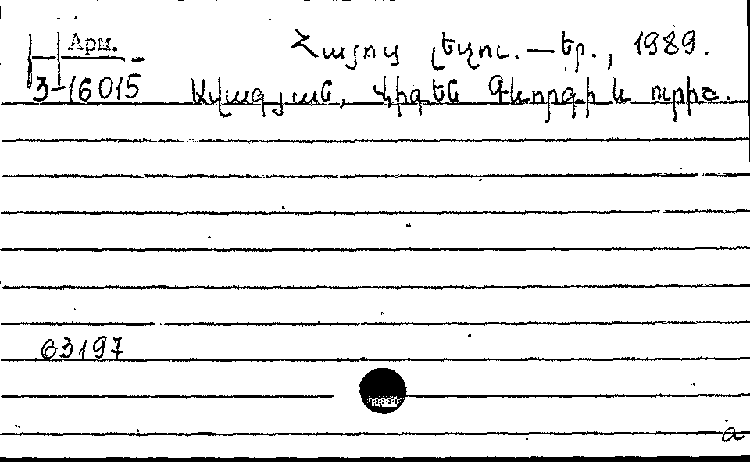 Арм.
Հայոց լեզու. — Եր., 1989.
3-16015
Ավագյան, Վիգեն Գևորգի և ուրիշ.
63197
a